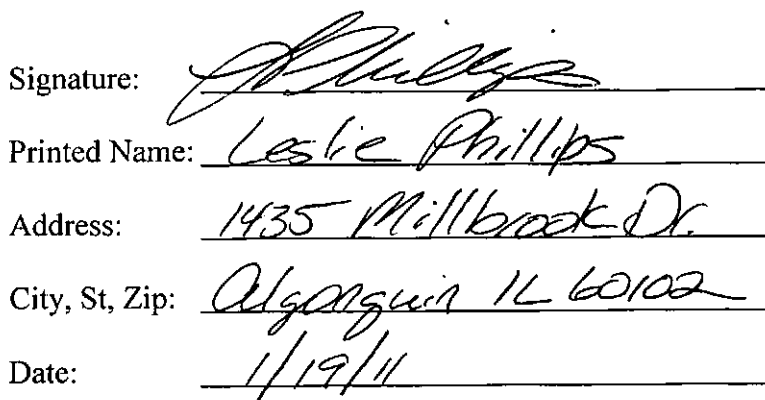 Signature: LPhillips
Printed Name: Leslie Phillips
Address: 1435 Millbrook Dr.
City, St, Zip: Algonquin IL 60102
Date: 1/19/11